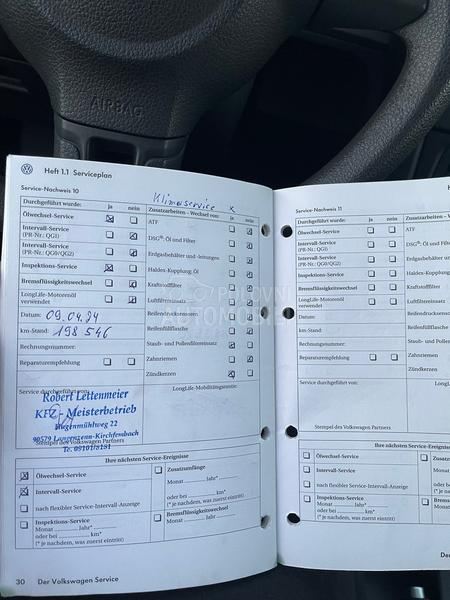 AIRBAG
Heft 1.1 Serviceplan
Service-Nachweis 10
Klimaservice x
Durchgeführt wurde: ja nein
Zusatzarbeiten – Wechsel von: ja nein
Ölwechsel-Service
ATF
Intervall-Service
(PR-Nr.: QG1)
DSG®: Öl und Filter
Intervall-Service
(PR-Nr.: QG0/QG2)
Erdgasbehälter und -leitungen
Inspektions-Service
Haldex-Kupplung, Öl
Bremsflüssigkeitswechsel
Kraftstofffilter
LongLife-Motorenöl
verwendet
Luftfiltereinsatz
Datum: 09.04.24
Reifendruckensor
km-Stand: 198 546
Reifenfüllflasche
Rechnungsnummer:
Staub- und Pollenfiltereinsatz
Reparaturempfehlung
Zahnriemen
Zündkerzen
Service durchgeführt von:
LongLife-Mobilitätsgarantie:
Robert Lettenmeier
KFZ - Meisterbetrieb
Hagenmühlweg 22
90579 Langenzenn-Kirchfembach
Te. 09101/5151
Stempel des Volkswagen Partners
Ihre nächsten Service-Ereignisse
Ölwechsel-Service
Zusatzumfänge
Intervall-Service
Monat Jahr*
nach flexibler Service-Intervall-Anzeige
oder bei km*
(* je nachdem, was zuerst eintritt)
Inspektions-Service
Monat Jahr*
oder bei km*
(* je nachdem, was zuerst eintritt)
Bremsflüssigkeitswechsel
Monat Jahr
30 Der Volkswagen Service
Service-Nachweis 11
Durchgeführt wurde: ja nein
Zusatzarbeiten
Ölwechsel-Service
ATF
Intervall-Service
(PR-Nr.: QG1)
DSG®: Öl und Filter
Intervall-Service
(PR-Nr.: QG0/QG2)
Erdgasbehälter und
Inspektions-Service
Haldex-Kupplung, Öl
Bremsflüssigkeitswechsel
Kraftstofffilter
LongLife-Motorenöl
verwendet
Luftfiltereinsatz
Datum:
km-Stand:
Reifenfüllflasche
Rechnungsnummer:
Staub- und Pollen
Reparaturempfehlung
Zahnriemen
Zündkerzen
Service durchgeführt von:
LongLife
Stempel des Volkswagen Partners
Ihre nächsten Service-Ereig
Ölwechsel-Service
Zusatz
Intervall-Service
Monat
nach flexibler Service-Intervall-Anzeige
oder bei
(* je nach
Inspektions-Service
Monat Jahr*
oder bei km*
(* je nachdem, was zuerst eintritt)
Bremsflü
Monat
POLOVNI
AUTOMOBILI